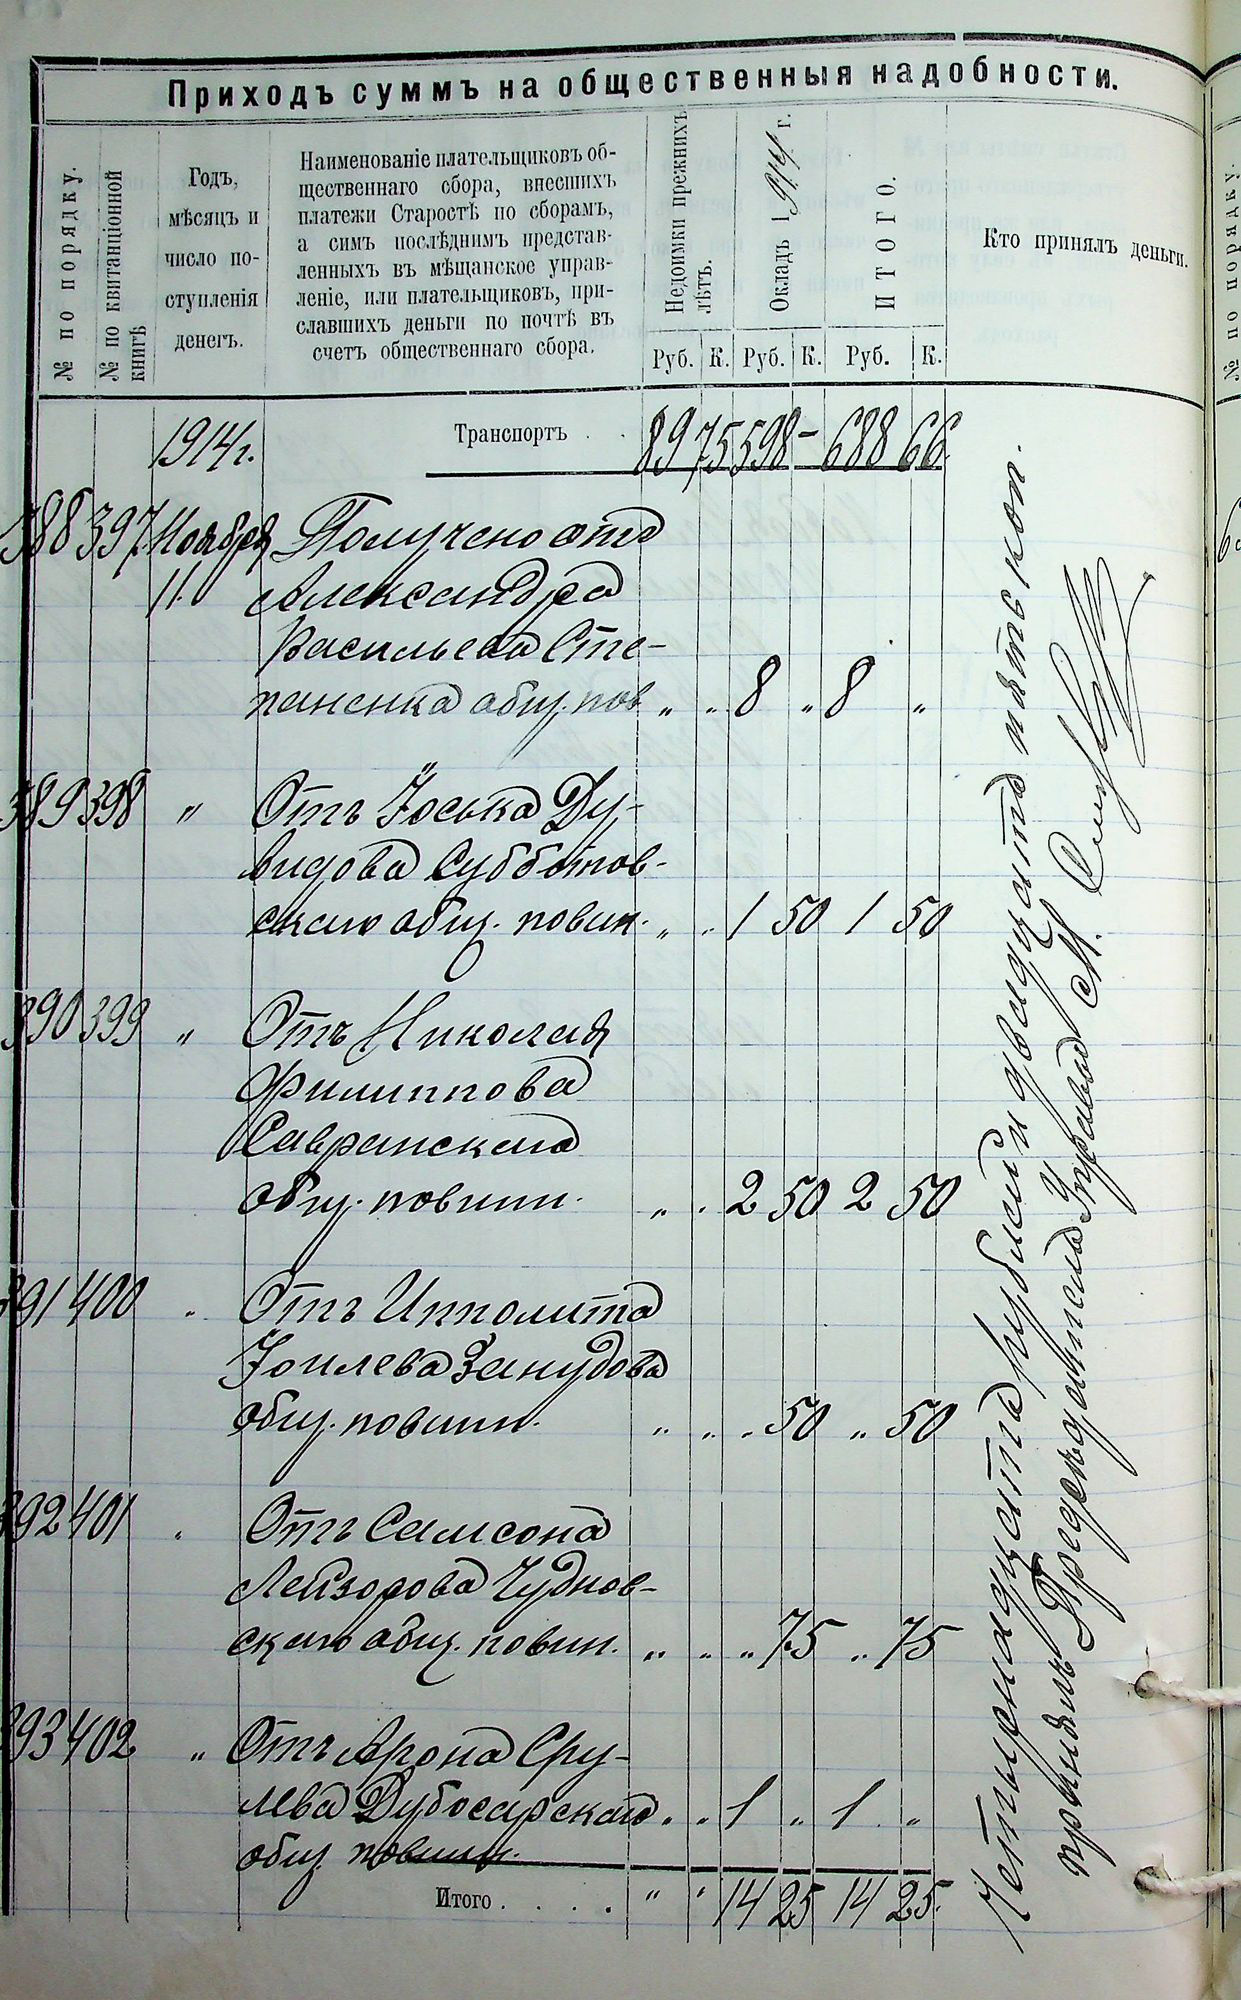 Приходъ суммъ на общественныя надобности.
№ по порядку.
№ по квитанціонной
книгѣ
Годъ,
мѣсяцъ и
число по-
ступленія
денегъ.
Наименованіе плательщиковъ об-
щественнаго сбора, внесшихъ
платежи Старостѣ по сборамъ,
а симъ послѣднимъ представ-
ленныхъ въ мѣщанское управ-
леніе, или плательщиковъ, при-
славшихъ деньги по почтѣ въ
счетъ общественнаго сбора.
Недоимки прежнихъ
лѣтъ.
Окладъ 1914 г.
ИТОГО.
Кто принялъ деньги.
Руб. К. Руб. К. Руб. К.
1914 г. Транспортъ . . 89 75 598 – 688 66
388 397 Ноября Получено отъ
11. Александра
Васильева Сте-
паненка общ. пов „ „ 8 „ 8 „
389 398 „ Отъ Іоська Ду-
видова Субботов-
скаго общ. повин. „ „ 1 50 1 50
390 399 „ Отъ Николая
Филиппова
Савранскаго
общ. повинн. „ „ 2 50 2 50
391 400 „ Отъ Ипполита
Іоилева Занудова
общ. повинн. „ „ „ 50 „ 50
392 401 „ Отъ Самсона
Лейзорова Чуднов-
скаго общ. повин. „ „ „ 75 „ 75
393 402 „ Отъ Арона Сру-
лева Дубосарскаго „ „ 1 „ 1 „
общ. повинн.
Итого . . . . „ „ 14 25 14 25.
Четырнадцать рублей и двадцать пять коп.
принялъ Предсѣдатель Управы М.
№ по порядку.